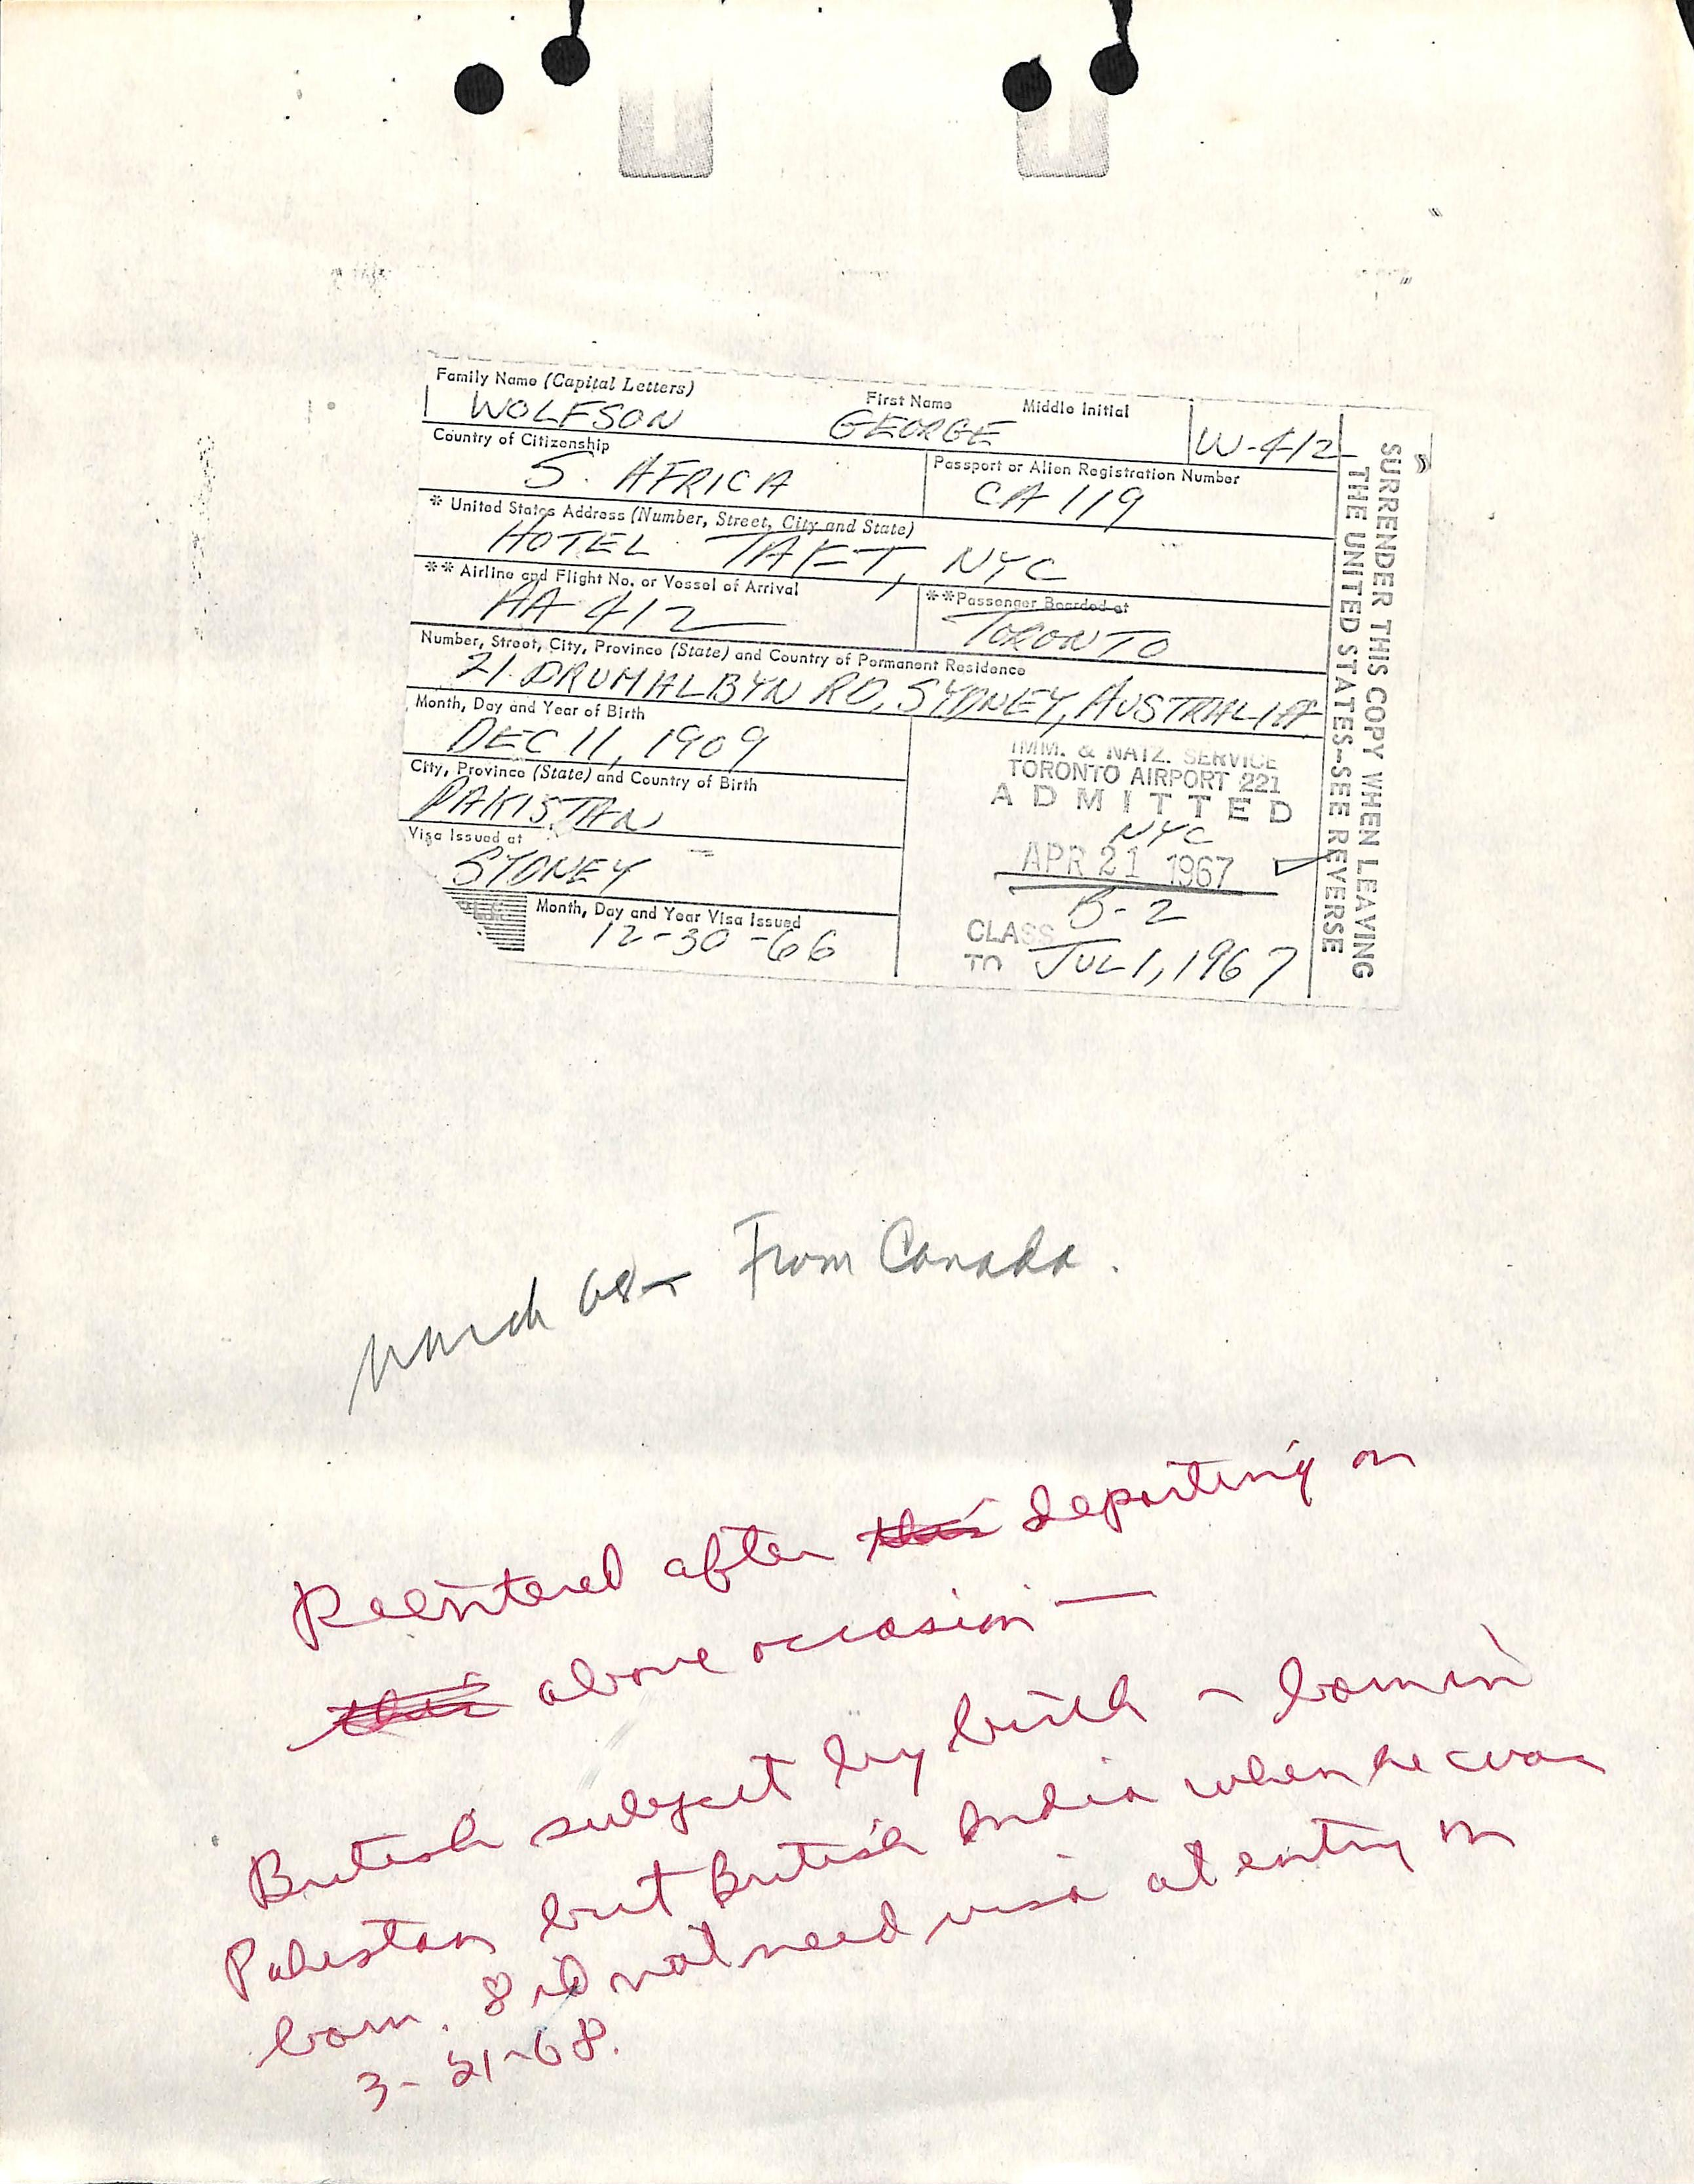 Family Name (Capital Letters) First Name Middle Initial
WOLFSON GEORGE W-412
Country of Citizenship Passport or Alien Registration Number
S. AFRICA CA 119
* United States Address (Number, Street, City and State)
HOTEL TAFT, NYC
** Airline and Flight No. or Vessel of Arrival **Passenger Boarded at
AA 412 TORONTO
Number, Street, City, Province (State) and Country of Permanent Residence
21 DRUMALBYN RD, SYDNEY, AUSTRALIA
Month, Day and Year of Birth
DEC 11, 1909
City, Province (State) and Country of Birth
PAKISTAN
Visa Issued at
SYDNEY
Month, Day and Year Visa Issued
12-30-66
IMM. & NATZ. SERVICE
TORONTO AIRPORT 221
ADMITTED
NYC
APR 21 1967
B-2
CLASS
TO JUL 1, 1967
SURRENDER THIS COPY WHEN LEAVING
THE UNITED STATES-SEE REVERSE
March 68- From Canada.
Reentered after this departing on
this above occasion —
British subject by birth - born in
Pakistan but British India when he was
born. Did not need visa at entry on
3-21-68.